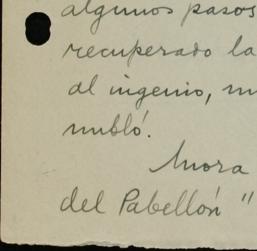 algunos pasos
recuperado la
al ingenio, m
nubló.
Mora
del Pabellón "